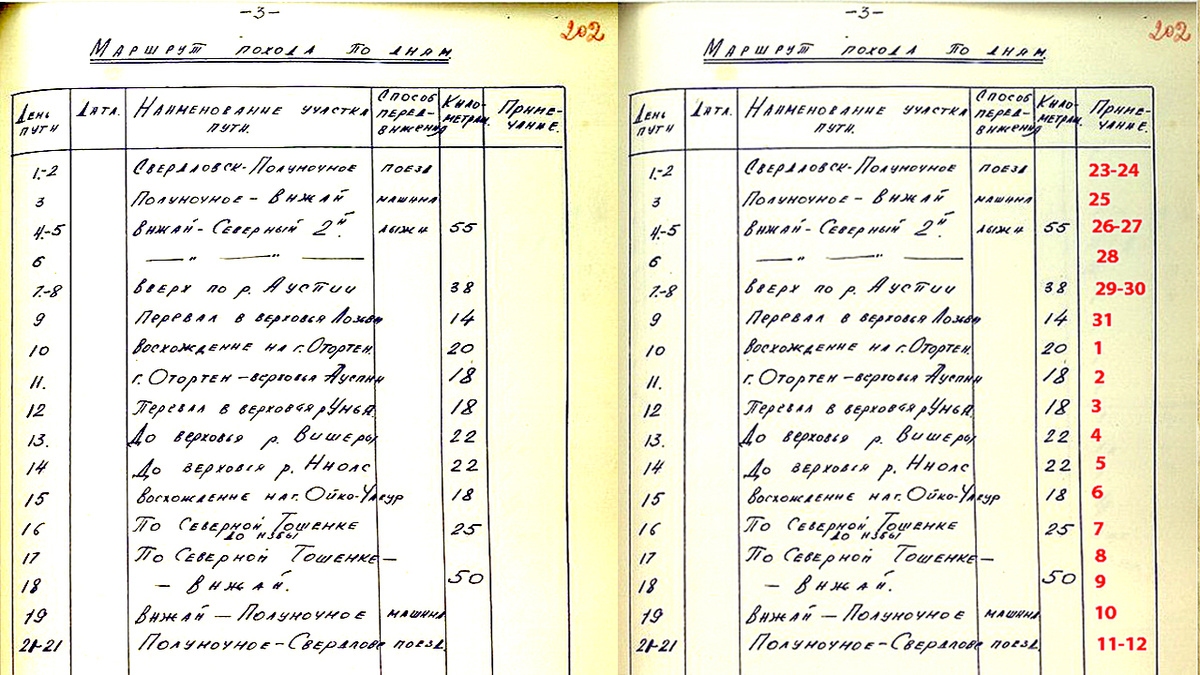 -3-
202
Маршрут похода по дням.
День пути Дата. Наименование участка пути. Способ передвижения Километраж. Примечание.
1.-2 Свердловск-Полуночное поезд
3 Полуночное - Вижай машина
4.-5 Вижай-Северный 2й. лыжи 55
6 — " — " —
7.-8 Вверх по р. Аустии 38
9 Перевал в верховья Лозьвы 14
10 Восхождение на г. Отортен. 20
11. г. Отортен - верховья Ауспии 18
12 Перевал в верховья р Унья. 18
13. До верховья р. Вишеры 22
14 До верховья р. Ниолс 22
15 Восхождение на г. Ойко-Чакур 18
16 По Северной Тошенке до избы 25
17 По Северной Тошенке —
18 — Вижай. 50
19 Вижай — Полуночное машина
21-21 Полуночное-Свердловс поезд.
-3-
202
Маршрут похода по дням.
День пути Дата. Наименование участка пути. Способ передвижения Километраж Примечание.
1.-2 Свердловск-Полуночное поезд 23-24
3 Полуночное - Вижай машина 25
4.-5 Вижай-Северный 2й. лыжи 55 26-27
6 — " — " — 28
7.-8 Вверх по р. Аустии 38 29-30
9 Перевал в верховья Лозьвы 14 31
10 Восхождение на г. Отортен. 20 1
11. г. Отортен - верховья Ауспии 18 2
12 Перевал в верховья р Унья. 18 3
13. До верховья р. Вишеры 22 4
14 До верховья р. Ниолс 22 5
15 Восхождение на г. Ойко-Чакур 18 6
16 По Северной Тошенке до избы 25 7
17 По Северной Тошенке — 8
18 — Вижай. 50 9
19 Вижай — Полуночное машина 10
21-21 Полуночное-Свердловс поезд. 11-12